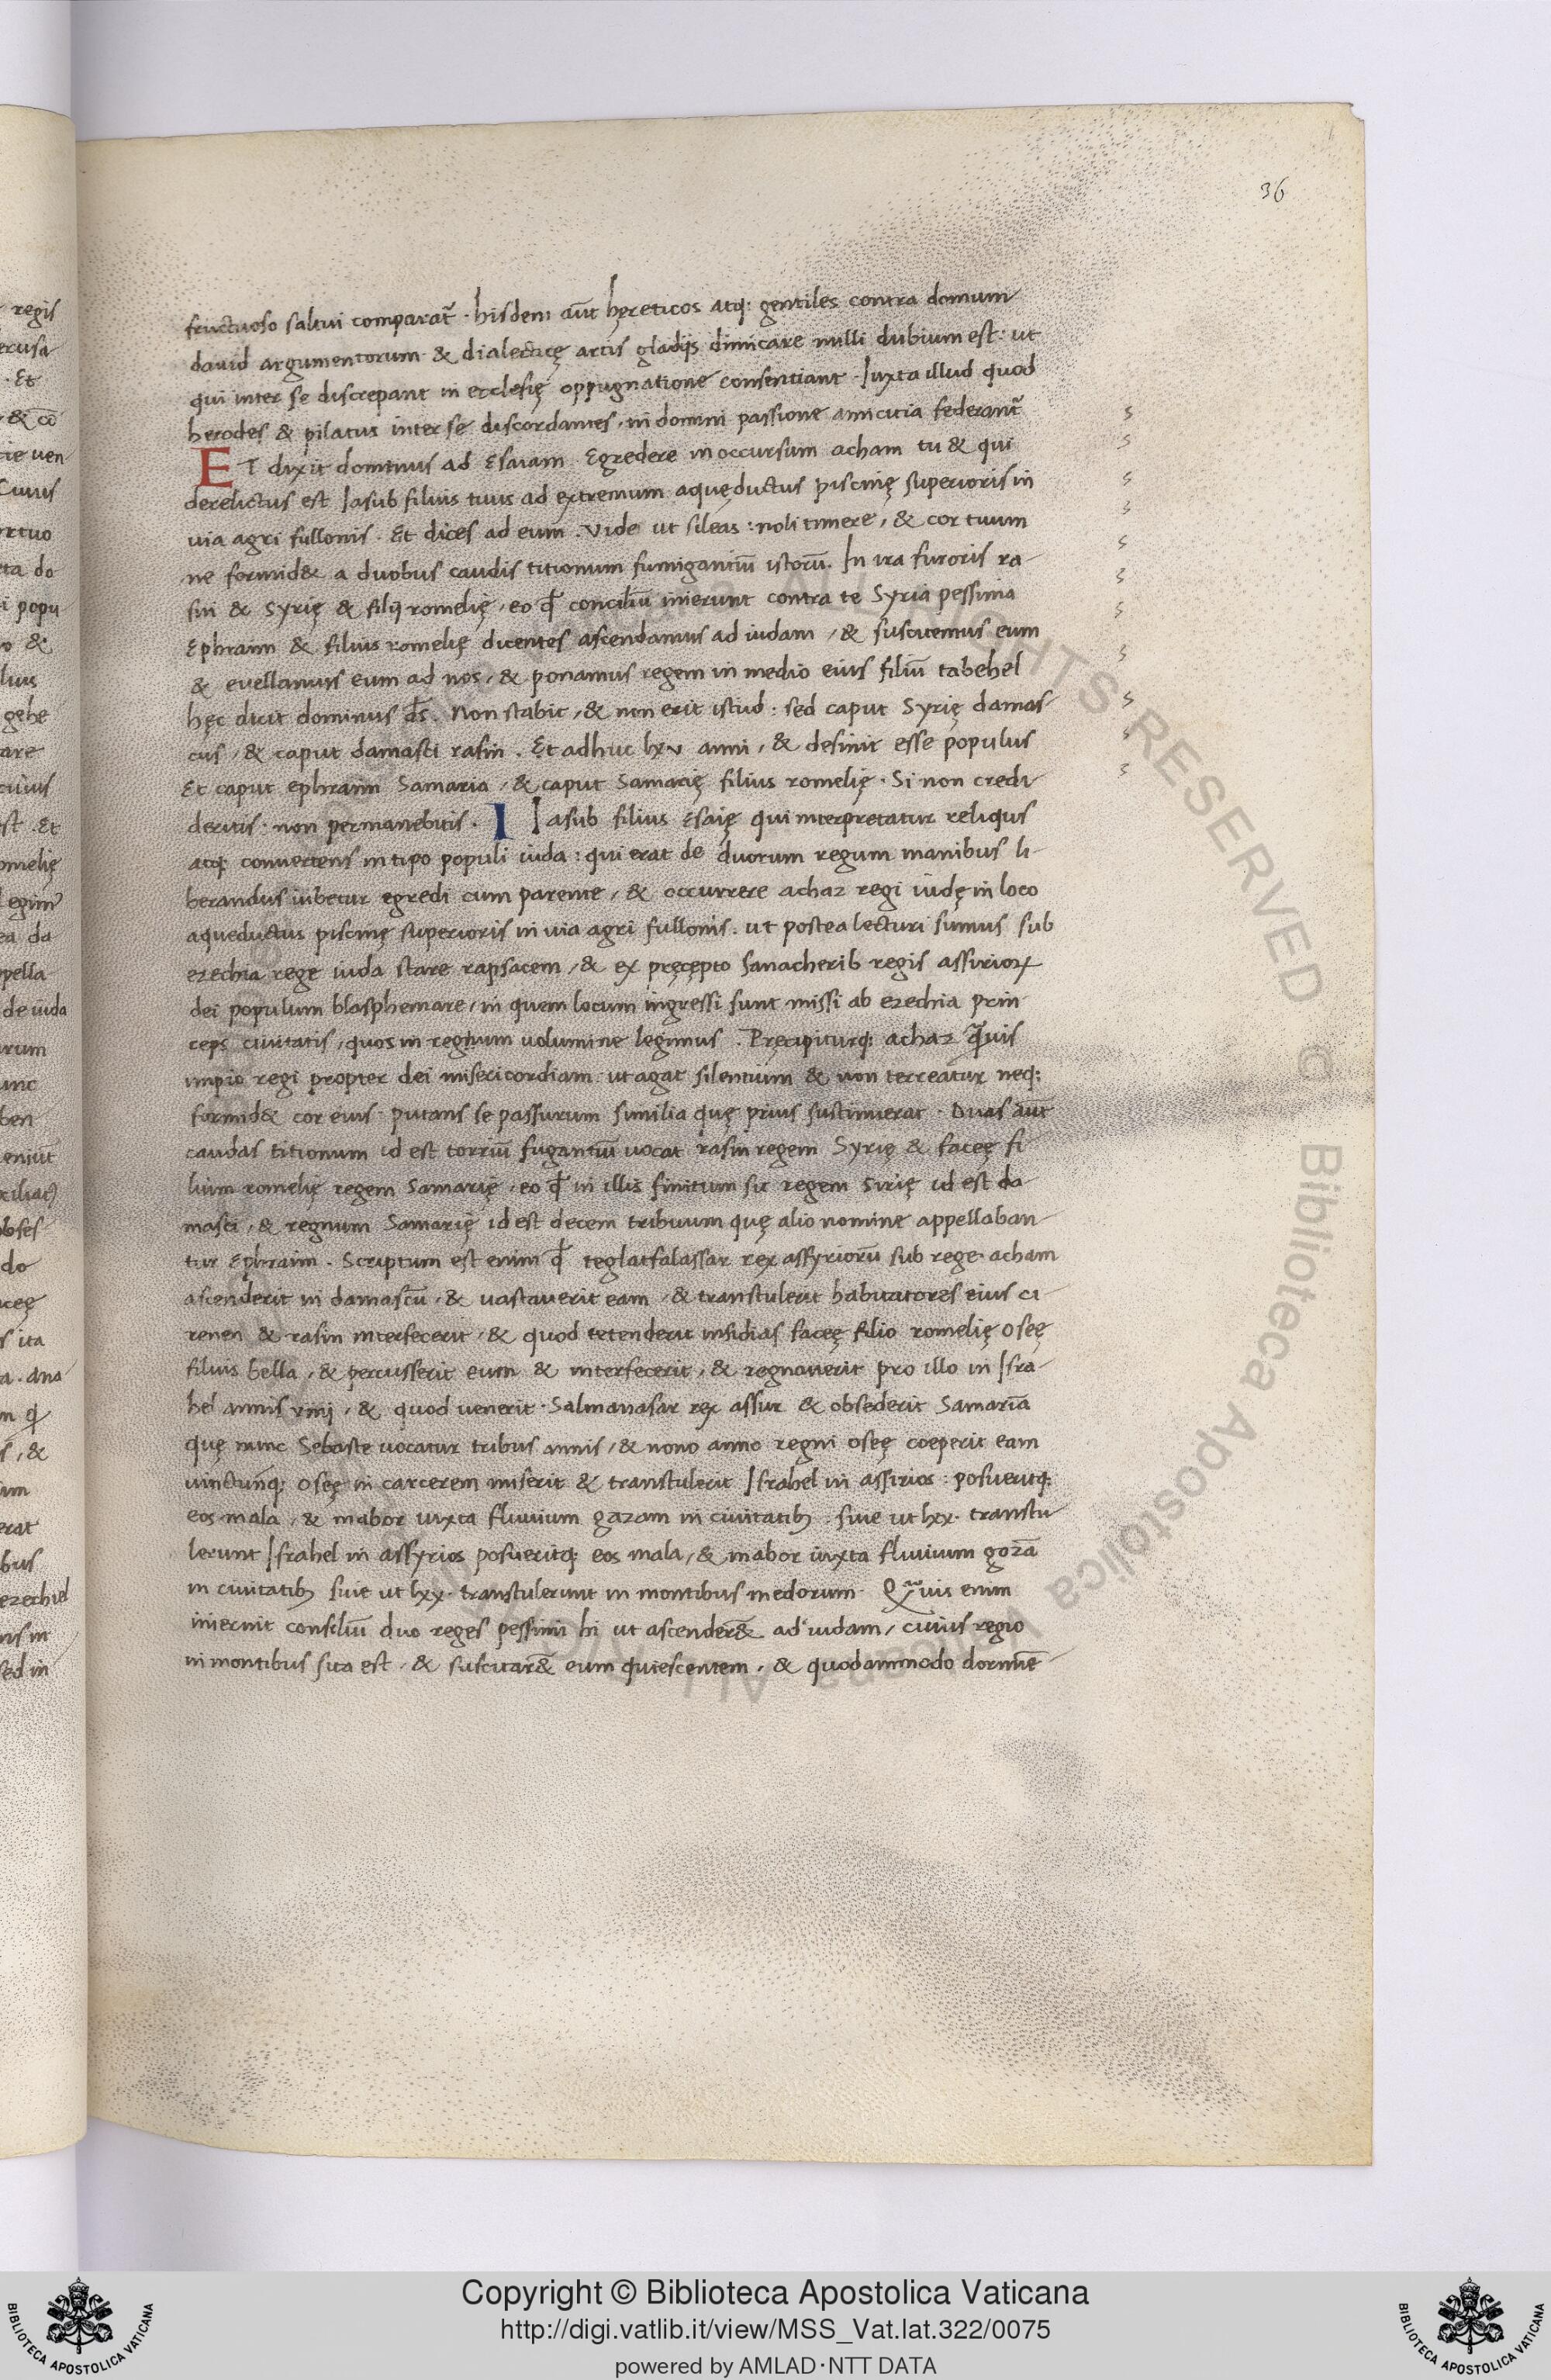 36
fructuoso saltui comparat᷑ · hisdem aūt hęreticos atq: gentiles contra domum
dauid argumentorum & dialecticę artis gladijs dimicare nulli dubium est: ut
qui inter se discrepant in ecclesię oppugnatione consentiant · Iuxta illud quod
herodes & pilatus inter se discordantes, in domini passione amicitia federant᷑
ET dixit dominus ad Esaiam. Egredere in occursum acham tu & qui
derelictus est Iasub filius tuus ad extremum aquęductus piscinę superioris in
uia agri fullonis. Et dices ad eum. Vide ut sileas: noli timere, & cor tuum
ne formid& a duobus caudis titionum fumigantiū istorū. In ira furoris ra-
sin & Syrię & filij romelię, eo ꝙ conciliū inierunt contra te Syria pessima
Ephraim & filius romelię dicentes ascendamus ad iudam, & suscitemus eum
& euellamus eum ad nos, & ponamus regem in medio eius filiū tabehel
hęc dicit dominus d̄s. Non stabit, & non erit istud: sed caput Syrię damas-
cus, & caput damasti rasin. Et adhuc lxv anni, & desinit esse populus
Et caput ephraim Samaria, & caput Samarię filius romelię. Si non credi-
deritis: non permanebitis. I Iasub filius Esaię qui interpretatur reliqus
atq: conuertens in tipo populi iuda: qui erat de duorum regum manibus li-
berandus iubetur egredi cum parente, & occurrere achaz regi iudę in loco
aqueductus piscinę superioris in uia agri fullonis. ut postea lecturi sumus sub
ezechia rege iuda stare rapsacem, & ex pręcępto sanacherib regis assirioꝝ
dei populum blasphemare, in quem locum ingressi sunt missi ab ezechia prin-
ceps ciuitatis, quos in regnum uolumine legimus. Pręcipiturq: achaz q̄uis
impio regi propter dei misericordiam ut agat silentium & non terreatur neq:
formid& cor eius putans se passurum similia quę prius sustinuerat. Duas aūt
caudas titionum id est torriū fugantiū uocat rasin regem Syrię & faceę fi-
lium romelię regem Samarię, eo ꝙ in illis finitum sit regem Sirię id est da-
masci, & regnum Samarię id est decem tribuum quę alio nomine appellaban-
tur Ephraim. Scriptum est enim ꝙ teglatfalassar rex assyriorū sub rege acham
ascenderit in damascū, & uastauerit eam, & transtulerit habitatores eius ci-
renen & rasin interfecerit, & quod tetenderit insidias faceę filio romelię oseę
filius bella, & percusserit eum & interfecerit, & regnauerit pro illo in Isra-
hel annis viiij, & quod uenerit Salmanasar rex assur & obsederit Samariā
quę nunc Sebaste uocatur tribus annis, & nono anno regni oseę coeperit eam
uinctunq: oseę in carcerem miserit & transtulerit Israhel in assirios: posueritq:
eos mala, & mabor iuxta fluuium gazam in ciuitatib; siue ut lxx. transtu-
lerunt Israhel in assyrios posueritq: eos mala, & mabor iuxta fluuium gozā
in ciuitatib; siue ut lxx. transtulerunt in montibus medorum. Q̄uis enim
inierint consiliū duo reges pessimi hi ut ascender& ad iudam, cuius regio
in montibus sita est, & suscitar& eum quiescentem, & quodammodo dormiē-
Copyright © Biblioteca Apostolica Vaticana
http://digi.vatlib.it/view/MSS_Vat.lat.322/0075
powered by AMLAD·NTT DATA